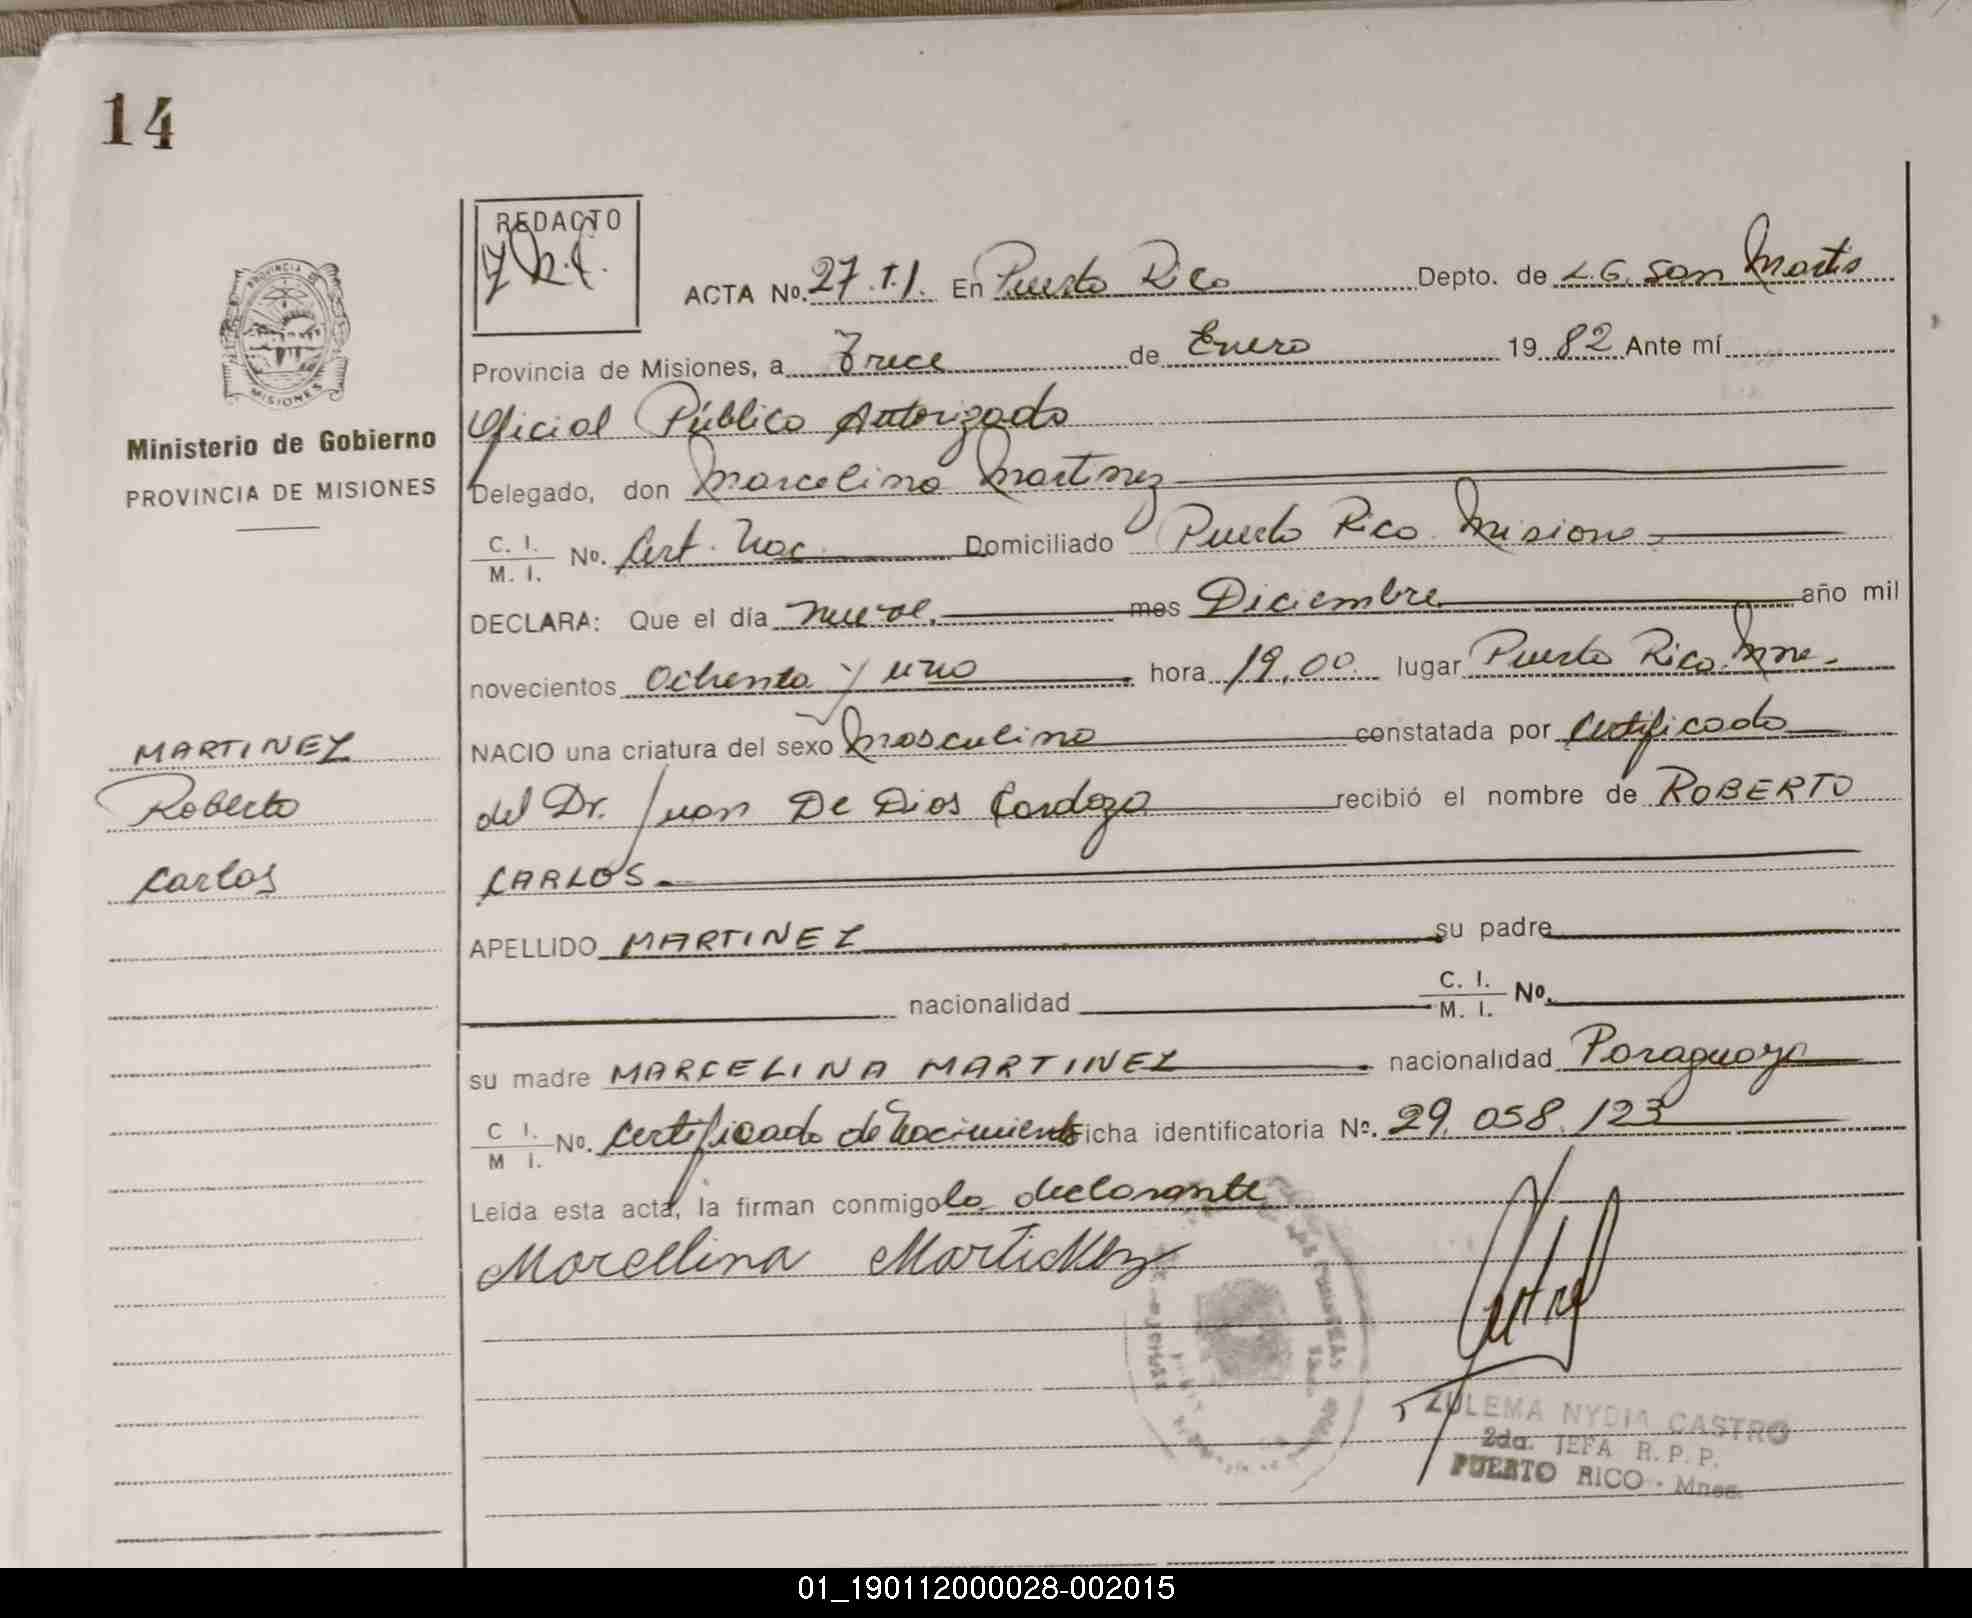 14
REDACTO
ACTA No. 27. T.I. En Puerto Rico Depto. de L.G. San Martin
Provincia de Misiones, a Trece de Enero 1982 Ante mí
Oficial Público Autorizado
Ministerio de Gobierno
PROVINCIA DE MISIONES
Delegado, don Marcelina Martinez
C. I. / M. I. No. Cert. Nac. Domiciliado Puerto Rico Misiones
DECLARA: Que el día nueve mes Diciembre año mil
novecientos Ochenta y uno hora 19,00 lugar Puerto Rico. Mnes.
MARTINEZ
Roberto
Carlos
NACIO una criatura del sexo Masculino constatada por Certificado
del Dr. Juan De Dios Cardozo recibió el nombre de ROBERTO
CARLOS
APELLIDO MARTINEZ su padre
nacionalidad C. I. / M. I. No.
su madre MARCELINA MARTINEZ nacionalidad Paraguaya
C I. / M I. No. Certificado de Nacimiento Ficha identificatoria No. 29.058.123
Leída esta acta, la firman conmigo la declarante
Morcellina Martinez
ZULEMA NYDIA CASTRO
2da. JEFA R. P. P.
PUERTO RICO - Mnes.
01_190112000028-002015